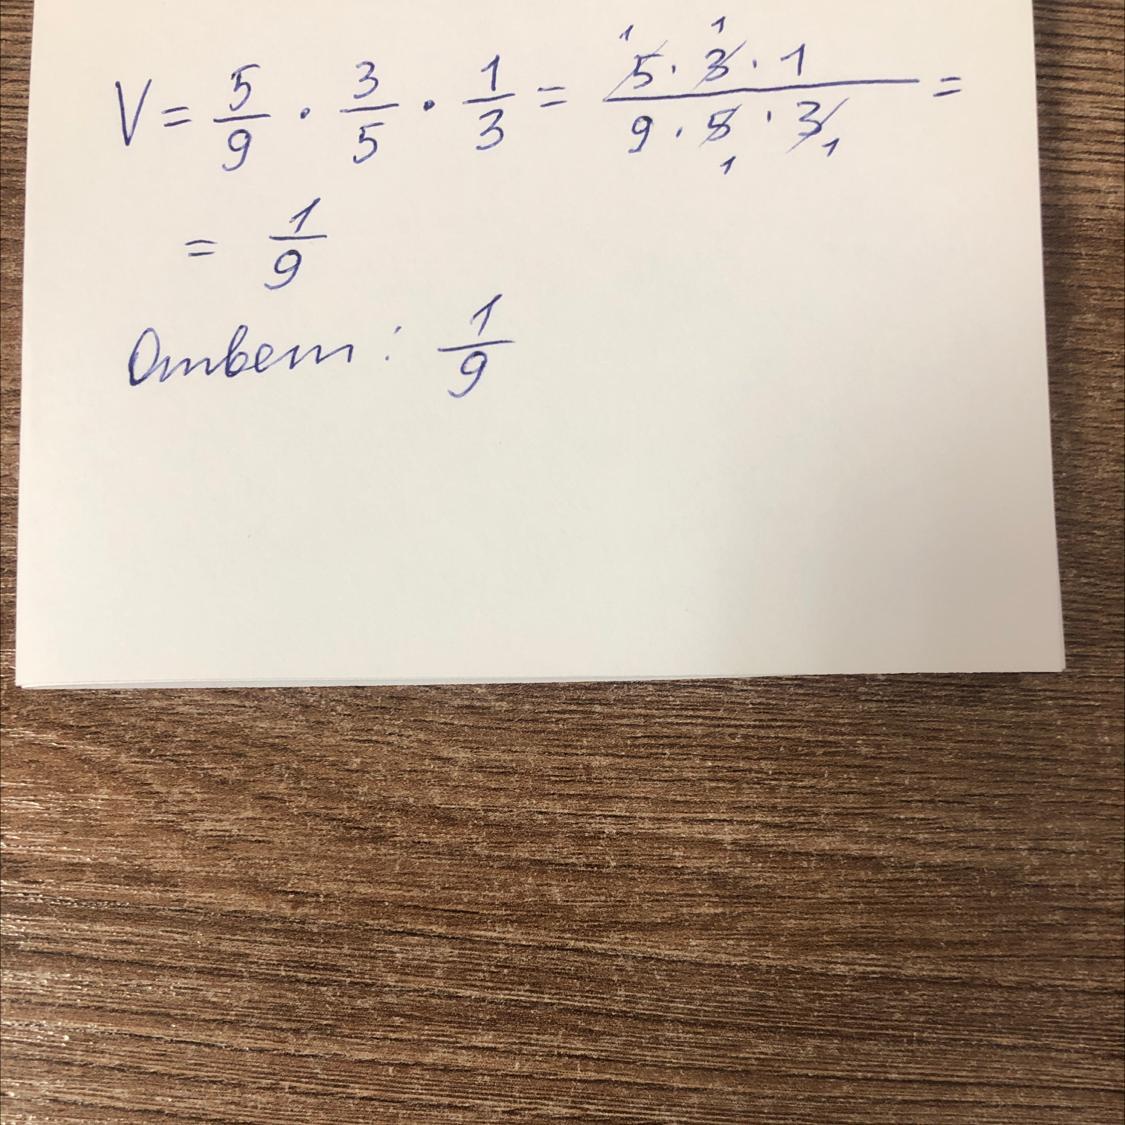 V = 5/9 · 3/5 · 1/3 = (5 · 3 · 1)/(9 · 5 · 3) =
= 1/9
Ответ: 1/9